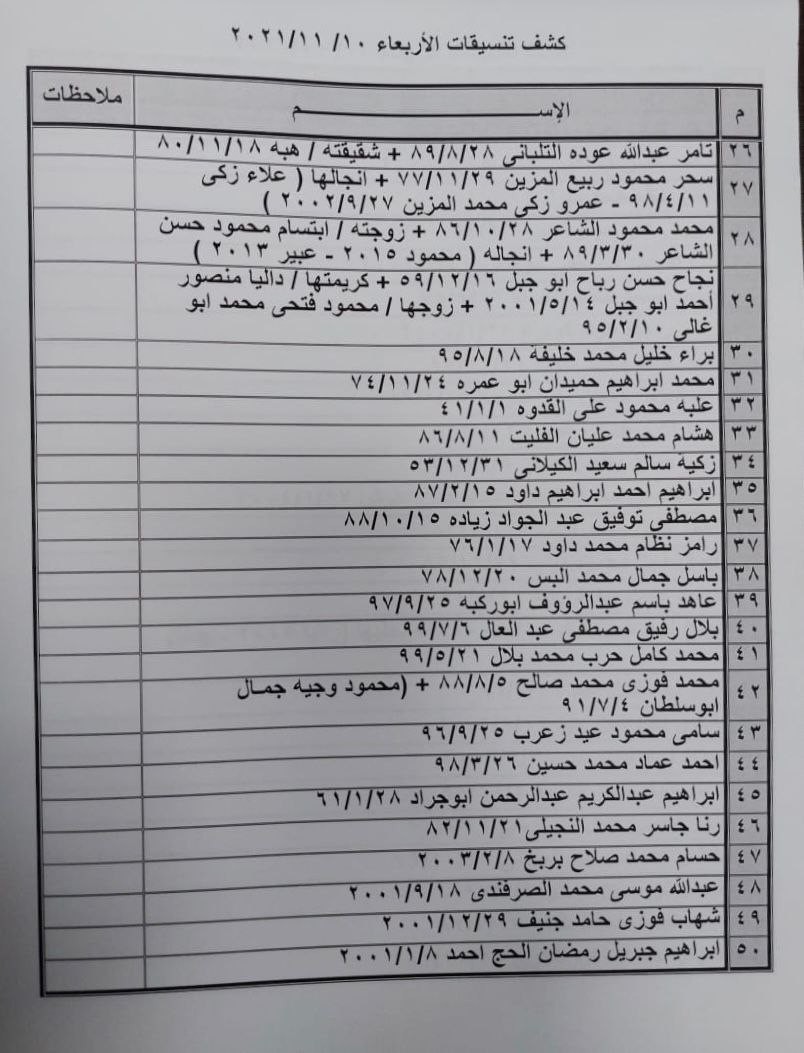 كشف تنسيقات الأربعاء ١٠/ ٢٠٢١/١١
م الإســـــــــم ملاحظات
٢٦ تامر عبدالله عوده التلبانى ٨٩/٨/٢٨ + شقيقته / هبه ٨٠/١١/١٨
٢٧ سحر محمود ربيع المزين ٧٧/١١/٢٩ + انجالها ( علاء زكى
٩٨/٤/١١ - عمرو زكى محمد المزين ٢٠٠٢/٩/٢٧ )
٢٨ محمد محمود الشاعر ٨٦/١٠/٢٨ + زوجته / ابتسام محمود حسن
الشاعر ٨٩/٣/٣٠ + انجاله ( محمود ٢٠١٥ - عبير ٢٠١٣ )
٢٩ نجاح حسن رباح ابو جبل ٥٩/١٢/١٦ + كريمتها / داليا منصور
أحمد ابو جبل ٢٠٠١/٥/١٤ + زوجها / محمود فتحى محمد ابو
غالى ٩٥/٢/١٠
٣٠ براء خليل محمد خليفة ٩٥/٨/١٨
٣١ محمد ابراهيم حميدان ابو عمره ٧٤/١١/٢٤
٣٢ علبه محمود على القدوه ٤١/١/١
٣٣ هشام محمد عليان الفليت ٨٦/٨/١١
٣٤ زكية سالم سعيد الكيلانى ٥٣/١٢/٣١
٣٥ ابراهيم احمد ابراهيم داود ٨٧/٢/١٥
٣٦ مصطفى توفيق عبد الجواد زياده ٨٨/١٠/١٥
٣٧ رامز نظام محمد داود ٧٦/١/١٧
٣٨ باسل جمال محمد البس ٧٨/١٢/٢٠
٣٩ عاهد باسم عبدالرؤوف ابوركبه ٩٧/٩/٢٥
٤٠ بلال رفيق مصطفى عبد العال ٩٩/٧/٦
٤١ محمد كامل حرب محمد بلال ٩٩/٥/٢١
٤٢ محمد فوزى محمد صالح ٨٨/٨/٥ + (محمود وجيه جمال
ابوسلطان ٩١/٧/٤
٤٣ سامى محمود عيد زعرب ٩٦/٩/٢٥
٤٤ احمد عماد محمد حسين ٩٨/٣/٢٦
٤٥ ابراهيم عبدالكريم عبدالرحمن ابوجراد ٦١/١/٢٨
٤٦ رنا جاسر محمد النجيلى ٨٢/١١/٢١
٤٧ حسام محمد صلاح بربخ ٢٠٠٣/٢/٨
٤٨ عبدالله موسى محمد الصرفندى ٢٠٠١/٩/١٨
٤٩ شهاب فوزى حامد جنيف ٢٠٠١/١٢/٢٩
٥٠ ابراهيم جبريل رمضان الحج احمد ٢٠٠١/١/٨